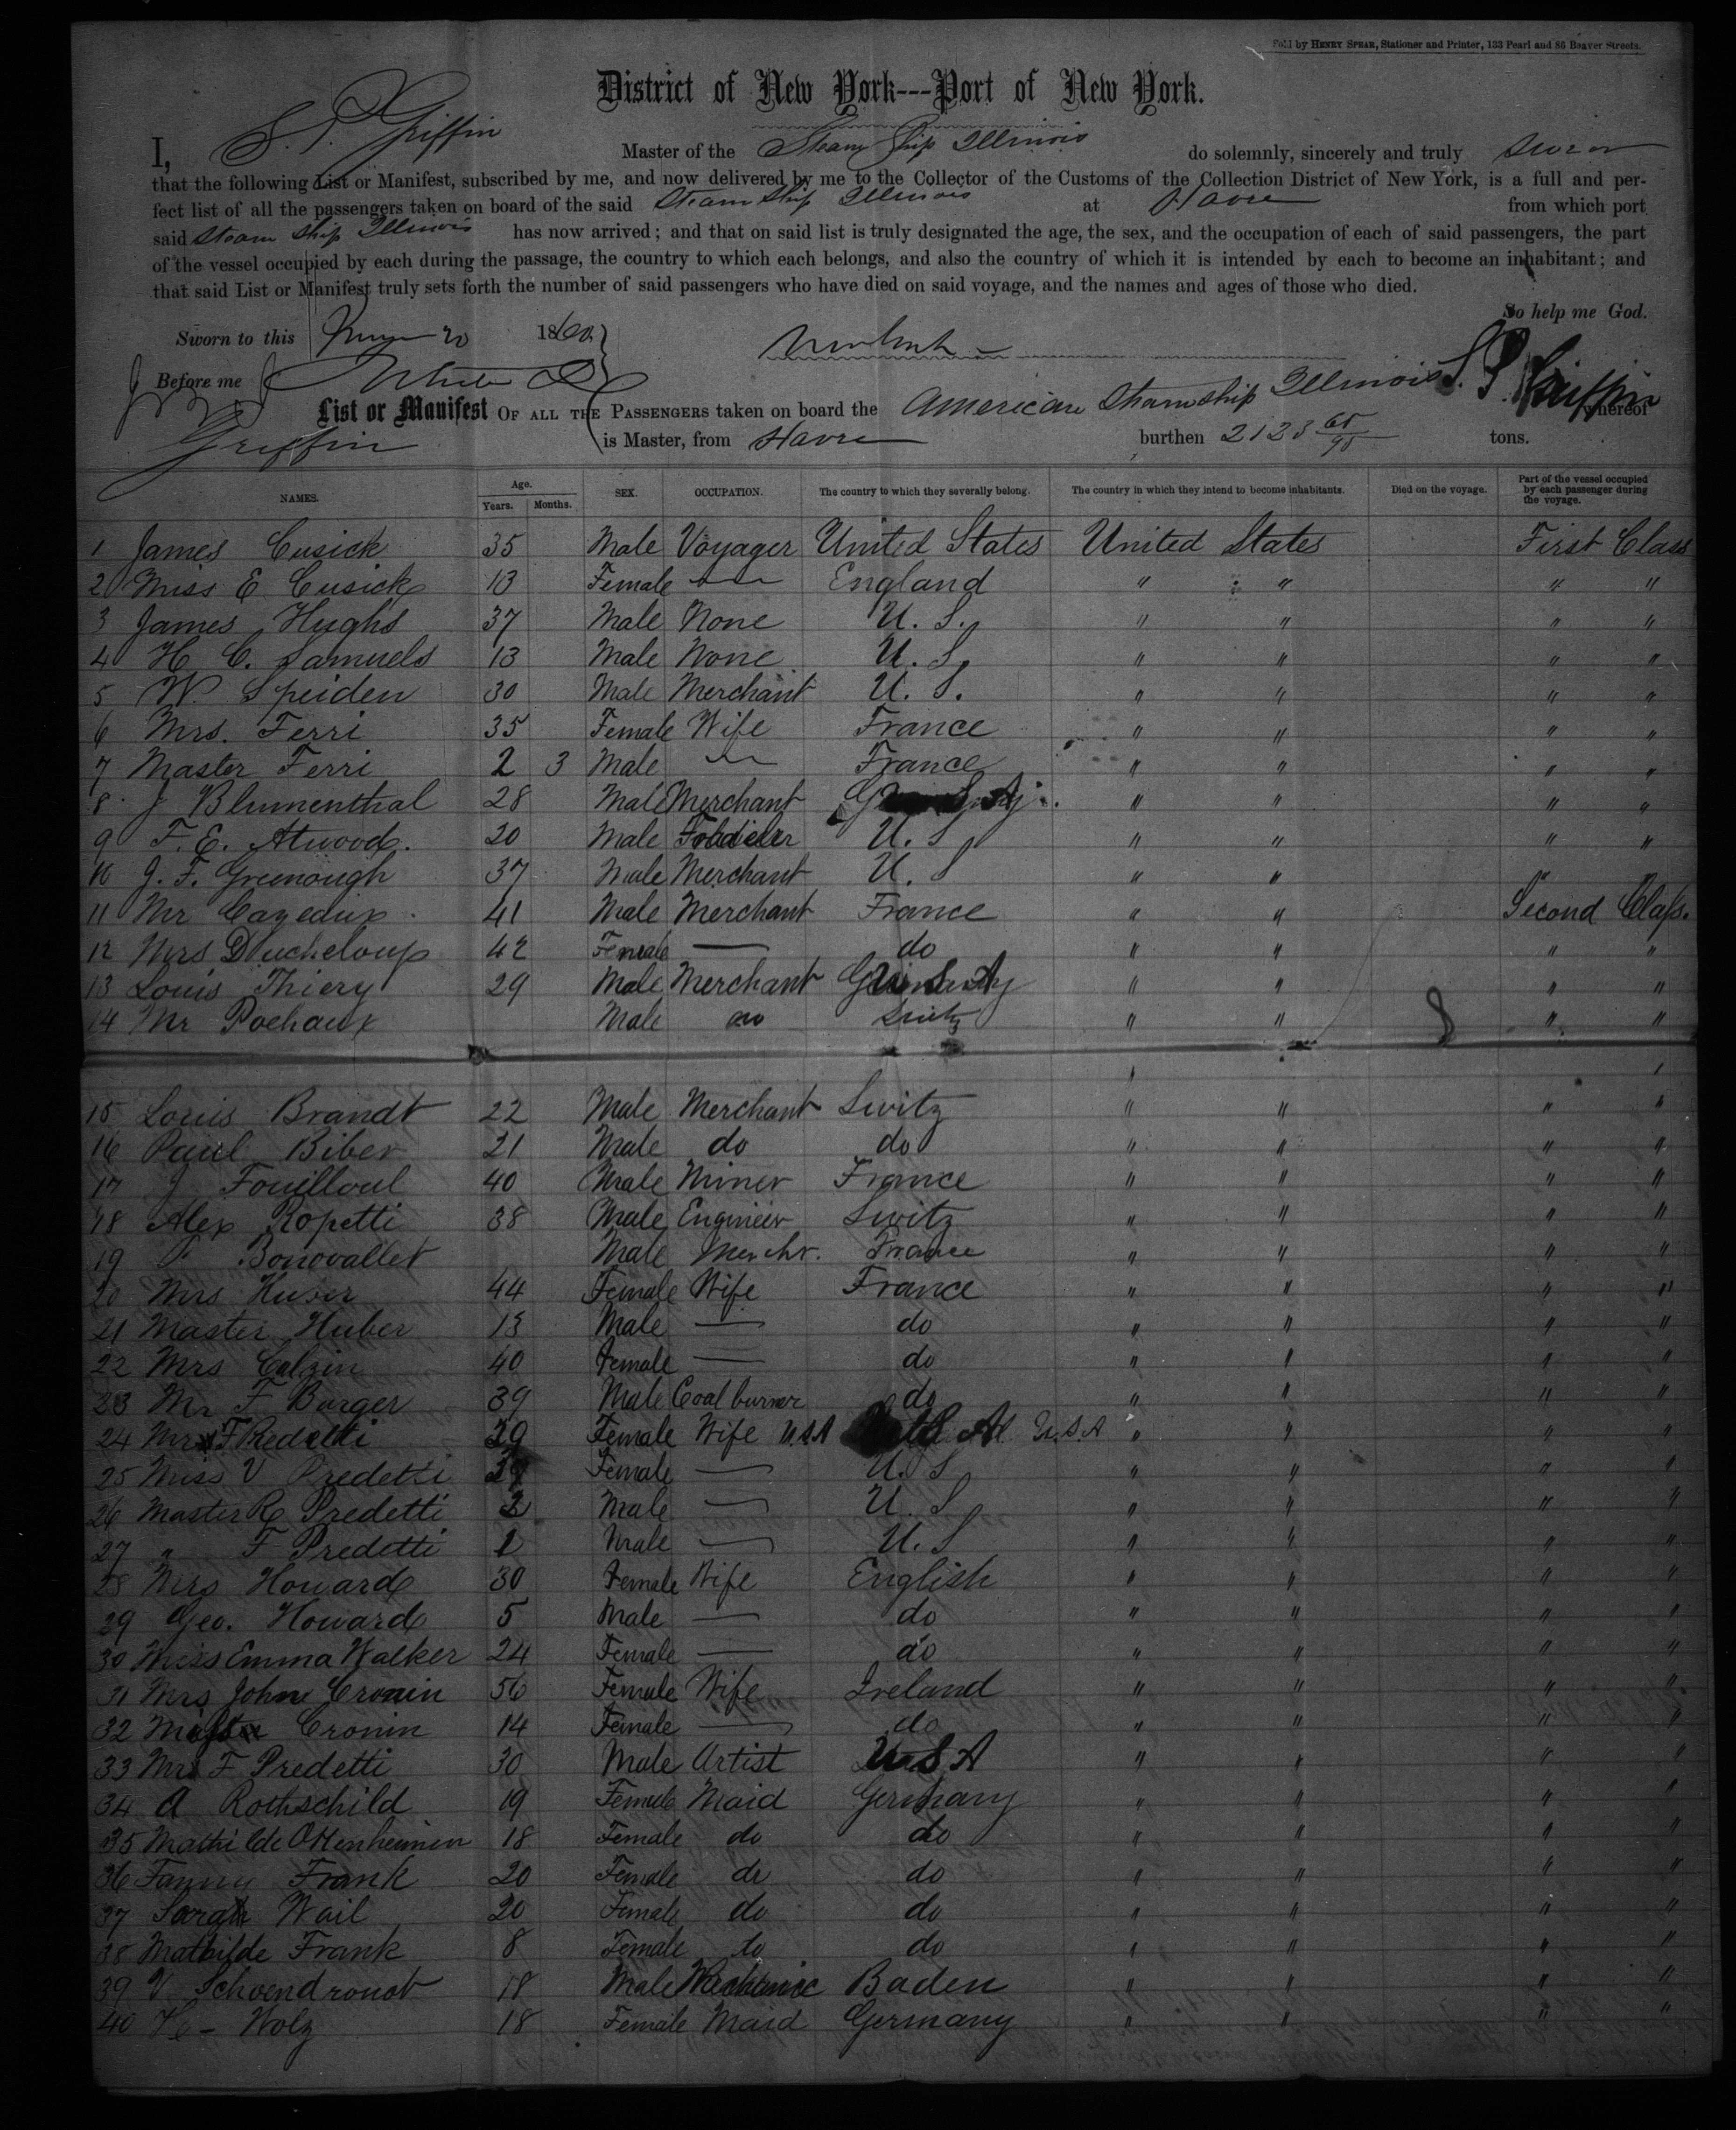 Sold by HENRY SPEAR, Stationer and Printer, 133 Pearl and 86 Beaver Streets.
District of New York---Port of New York.
I, S. P. Griffin Master of the Steam Ship Illinois do solemnly, sincerely and truly swear
that the following List or Manifest, subscribed by me, and now delivered by me to the Collector of the Customs of the Collection District of New York, is a full and per-
fect list of all the passengers taken on board of the said Steam Ship Illinois at Havre from which port
said Steam Ship Illinois has now arrived; and that on said list is truly designated the age, the sex, and the occupation of each of said passengers, the part
of the vessel occupied by each during the passage, the country to which each belongs, and also the country of which it is intended by each to become an inhabitant; and
that said List or Manifest truly sets forth the number of said passengers who have died on said voyage, and the names and ages of those who died.
So help me God.
Sworn to this 20 1860
Before me S. P. Griffin
List or Manifest OF ALL THE PASSENGERS taken on board the American Steamship Illinois whereof
Griffin is Master, from Havre burthen 2123 65/95 tons.
NAMES. Age. Years. Months. SEX. OCCUPATION. The country to which they severally belong. The country in which they intend to become inhabitants. Died on the voyage. Part of the vessel occupied by each passenger during the voyage.
1 James Cusick 35 Male Voyager United States United States First Class
2 Miss E Cusick 13 Female — England " " " "
3 James Hughs 37 Male None U. S. " " " "
4 H C. Samuels 13 Male None U. S. " " " "
5 W. Speiden 30 Male Merchant U. S. " " " "
6 Mrs. Ferri 35 Female Wife France " " " "
7 Master Ferri 2 3 Male — France " " " "
8 J Blumenthal 28 Male Merchant " " " "
9 F. E. Atwood. 20 Male U. S " " " "
10 J. F. Greenough 37 Male Merchant U. S " " "
11 Mr Cazeaux 41 Male Merchant France " " Second Class.
12 Mrs Ducheloup 42 Female — do " " " "
13 Louis Thiery 29 Male Merchant " " " "
14 Mr Pochaux Male do Switz " " " "
15 Louis Brandt 22 Male Merchant Switz " " " "
16 Paul Biber 21 Male do do " " " "
17 J Fouilloul 40 Male Miner France " " " "
18 Alex Ropetti 38 Male Engineer Switz " " " "
19 Bonovallet Male Merchr. France " " " "
20 Mrs Huber 44 Female Wife France " " " "
21 Master Huber 13 Male — do " " " "
22 Mrs Calzin 40 Female — do " " " "
23 Mr F Barger 39 Male Coal burner do " " " "
24 Mrs F Predetti 29 Female Wife U.S.A U.S.A " " " "
25 Miss V Predetti Female — U. S " " " "
26 Master R Predetti 2 Male — U. S " " " "
27 " F Predetti 1 Male — U. S " " " "
28 Mrs Howard 30 Female Wife English " " " "
29 Geo. Howard 5 Male — do " " " "
30 Miss Emma Walker 24 Female — do " " " "
31 Mrs John Cronin 56 Female Wife Ireland " " " "
32 Cronin 14 Female — do " " " "
33 Mr F Predetti 30 Male Artist U S A " " " "
34 A Rothschild 19 Female Maid Germany " " " "
35 Mathilde Ottenheimen 18 Female do do " " " "
36 Fanny Frank 20 Female do do " " " "
37 Sarah Wail 20 Female do do " " " "
38 Mathilde Frank 8 Female do do " " " "
39 V Schoendronot 18 Male Mechanic Baden " " " "
40 Wolz 18 Female Maid Germany " " " "